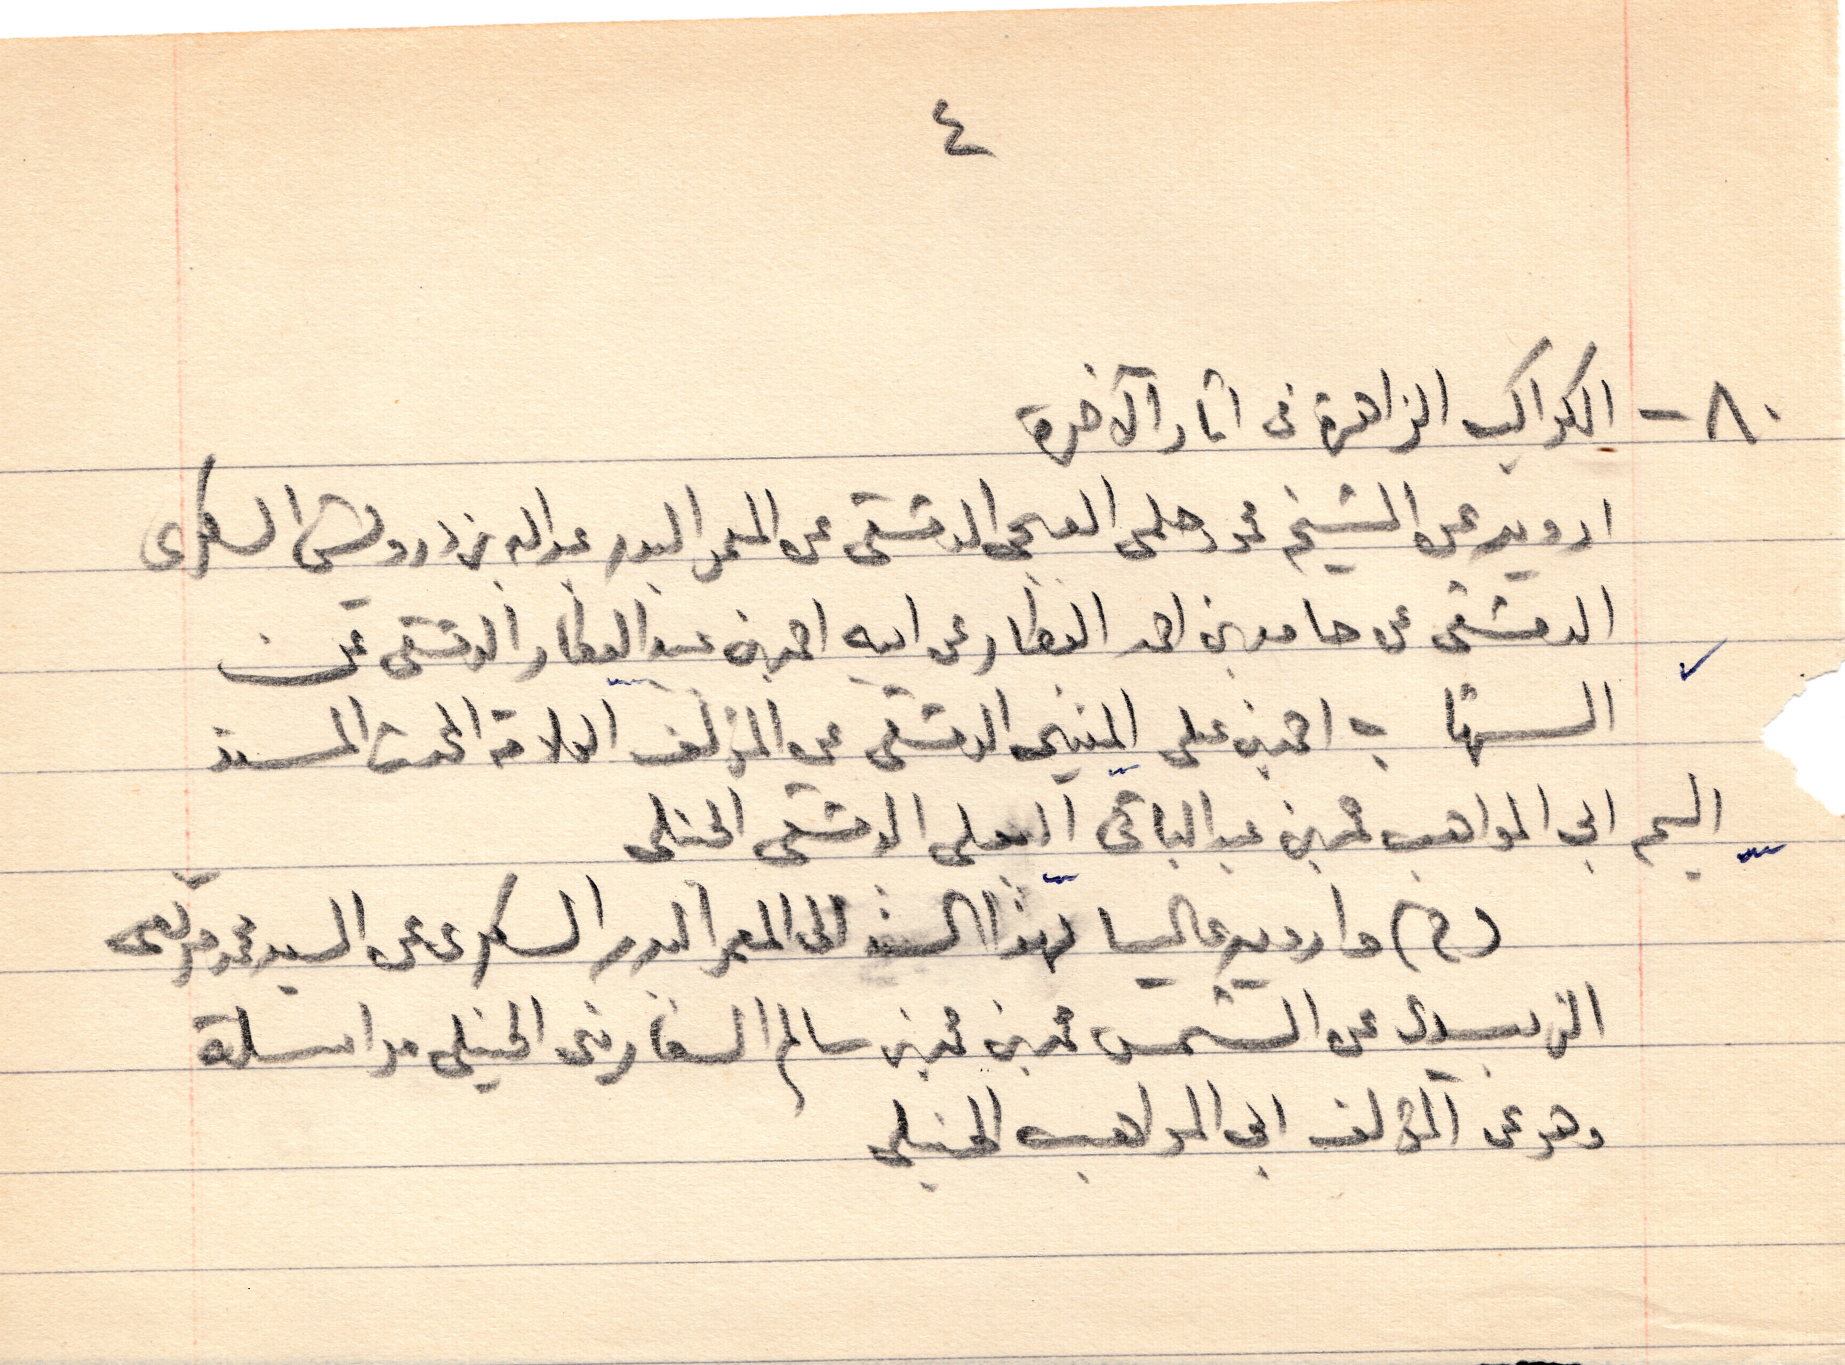 ٤
٨٠- الكواكب الزاهرة فى اثار الآخرة
ارويه عن الشيخ محمد العربي الدمشقى عن المعمر البدر عبد الله بن درويش السكرى
الدمشقى عن حامد بن احمد العطار عن ابيه احمد بن عبيد العطار الدمشقى عن
الشهاب احمد بن على المنينى الدمشقى عن المؤلف العلامة المحدث المسند
ابى المواهب محمد بن عبد الباقى البعلى الدمشقى الحنبلى
(ح) وارويه عاليا بهذا السند الى المعمر البدر السكرى عن السيد محمد مرتضى
الزبيدى عن الشمس محمد بن محمد بن سالم السفارينى الحنبلى مراسلة
وهو عن المؤلف ابى المواهب الحنبلى